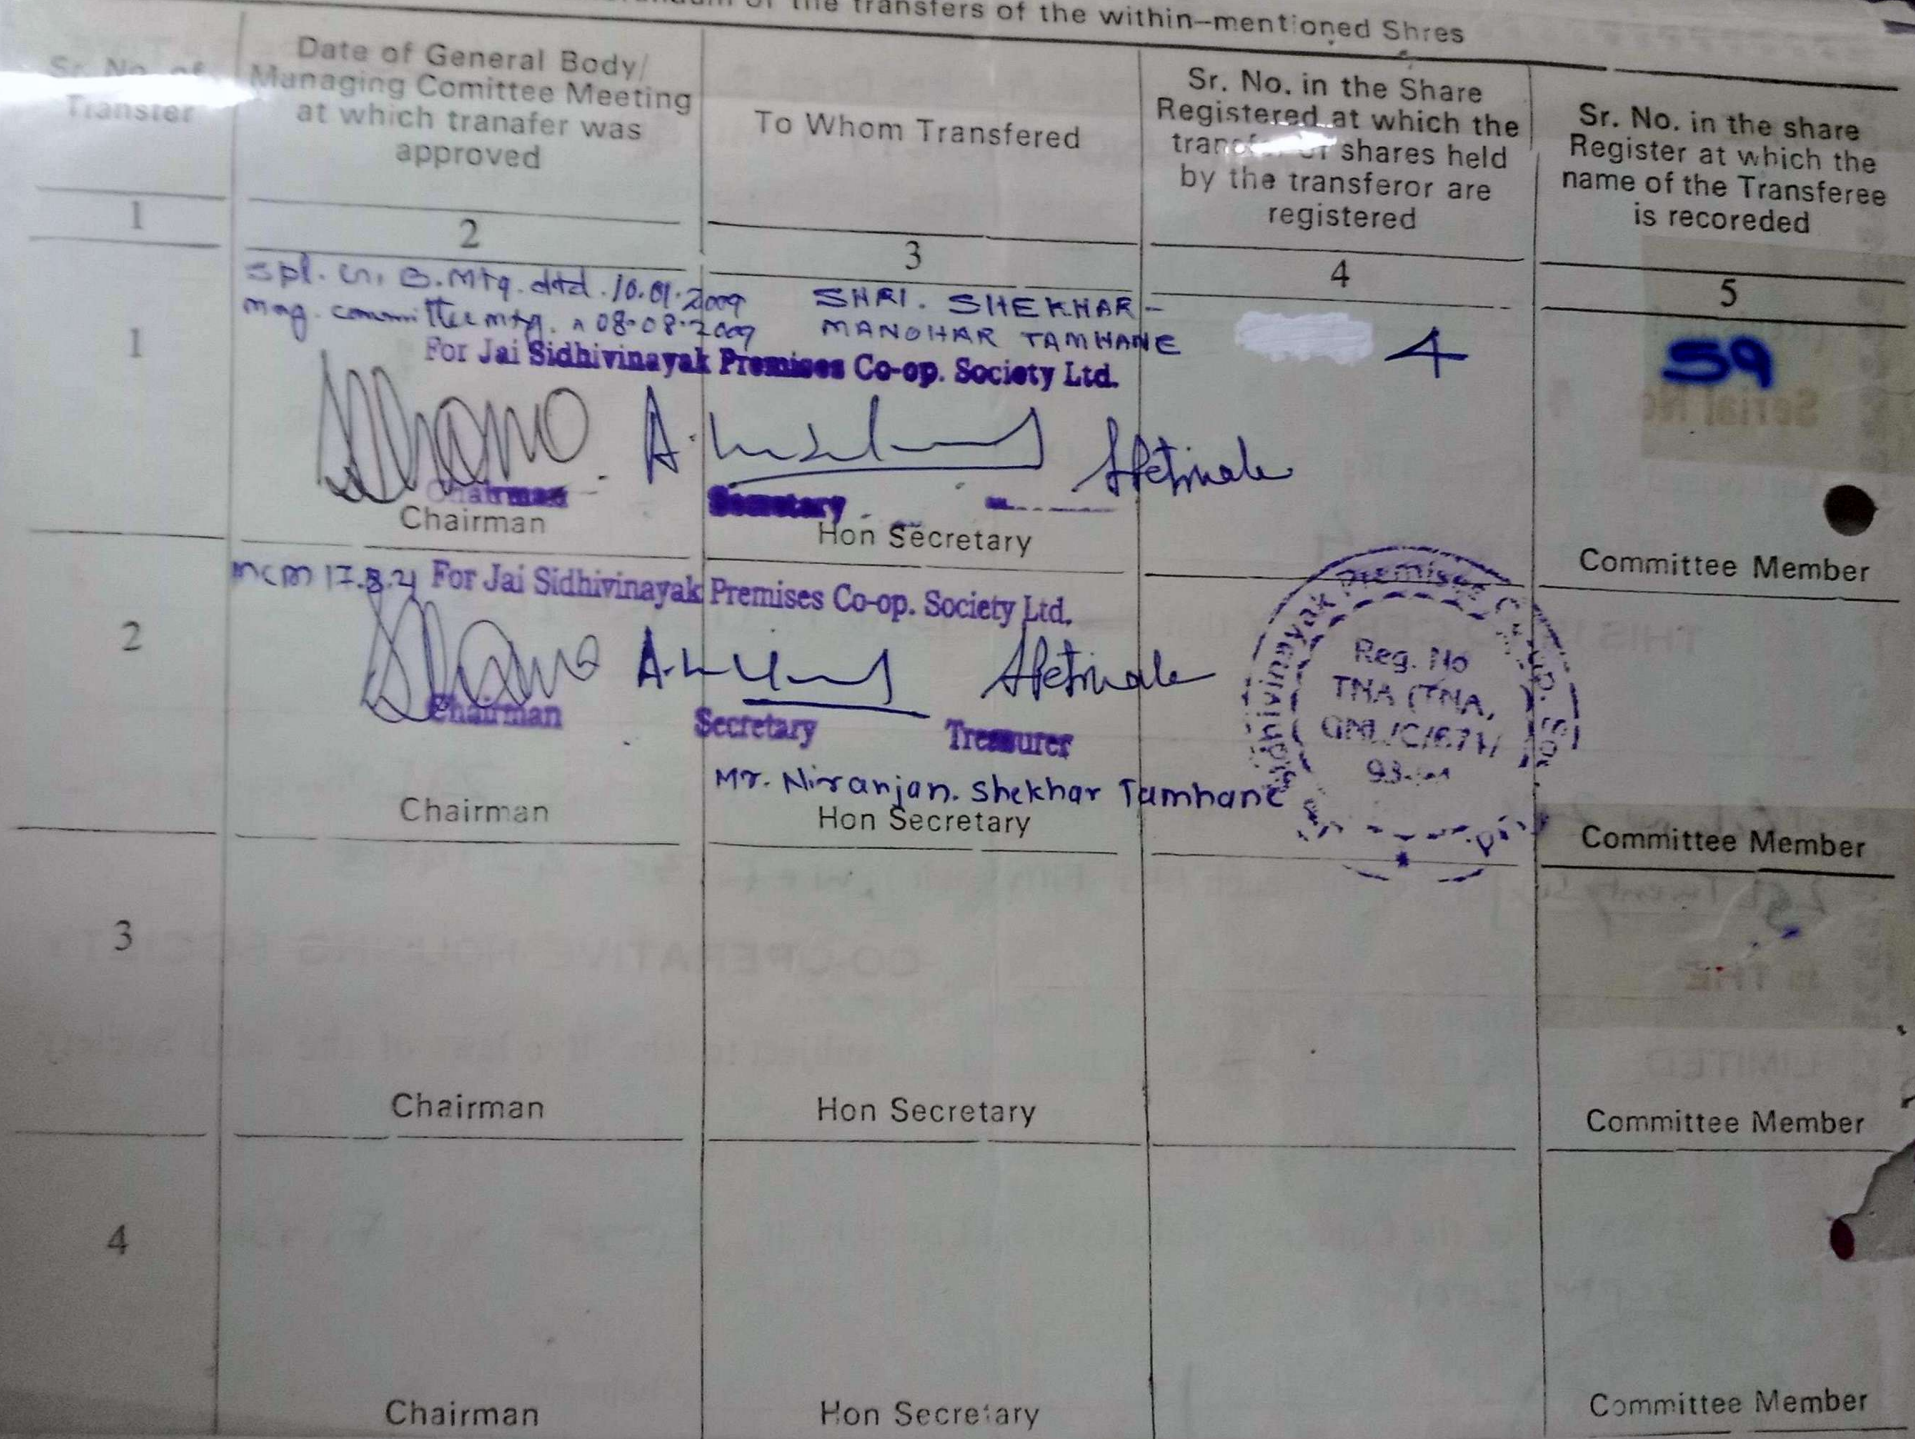 of the transfers of the within-mentioned Shres
Sr. No. of
Transfer
Date of General Body/
Managing Comittee Meeting
at which tranafer was
approved
To Whom Transfered
Sr. No. in the Share
Registered at which the
shares held
by the transferor are
registered
Sr. No. in the share
Register at which the
name of the Transferee
is recoreded
1
2
3
4
5
1
Spl. G. B. Mtg. dtd. 10.01.2009
mag. committee mtg. 08.08.2009
SHRI. SHEKHAR-
MANOHAR TAMHANE
4
59
For Jai Sidhivinayak Premises Co-op. Society Ltd.
Chairman
Secretary
Chairman
Hon Secretary
Committee Member
2
mcm 17.8.21 For Jai Sidhivinayak Premises Co-op. Society Ltd.
Chairman
Secretary
Treasurer
Mr. Niranjan. Shekhar Tamhane
Chairman
Hon Secretary
Committee Member
Sidhivinayak Premises
Reg. No
TNA (TNA,
3
Chairman
Hon Secretary
Committee Member
4
Chairman
Hon Secretary
Committee Member